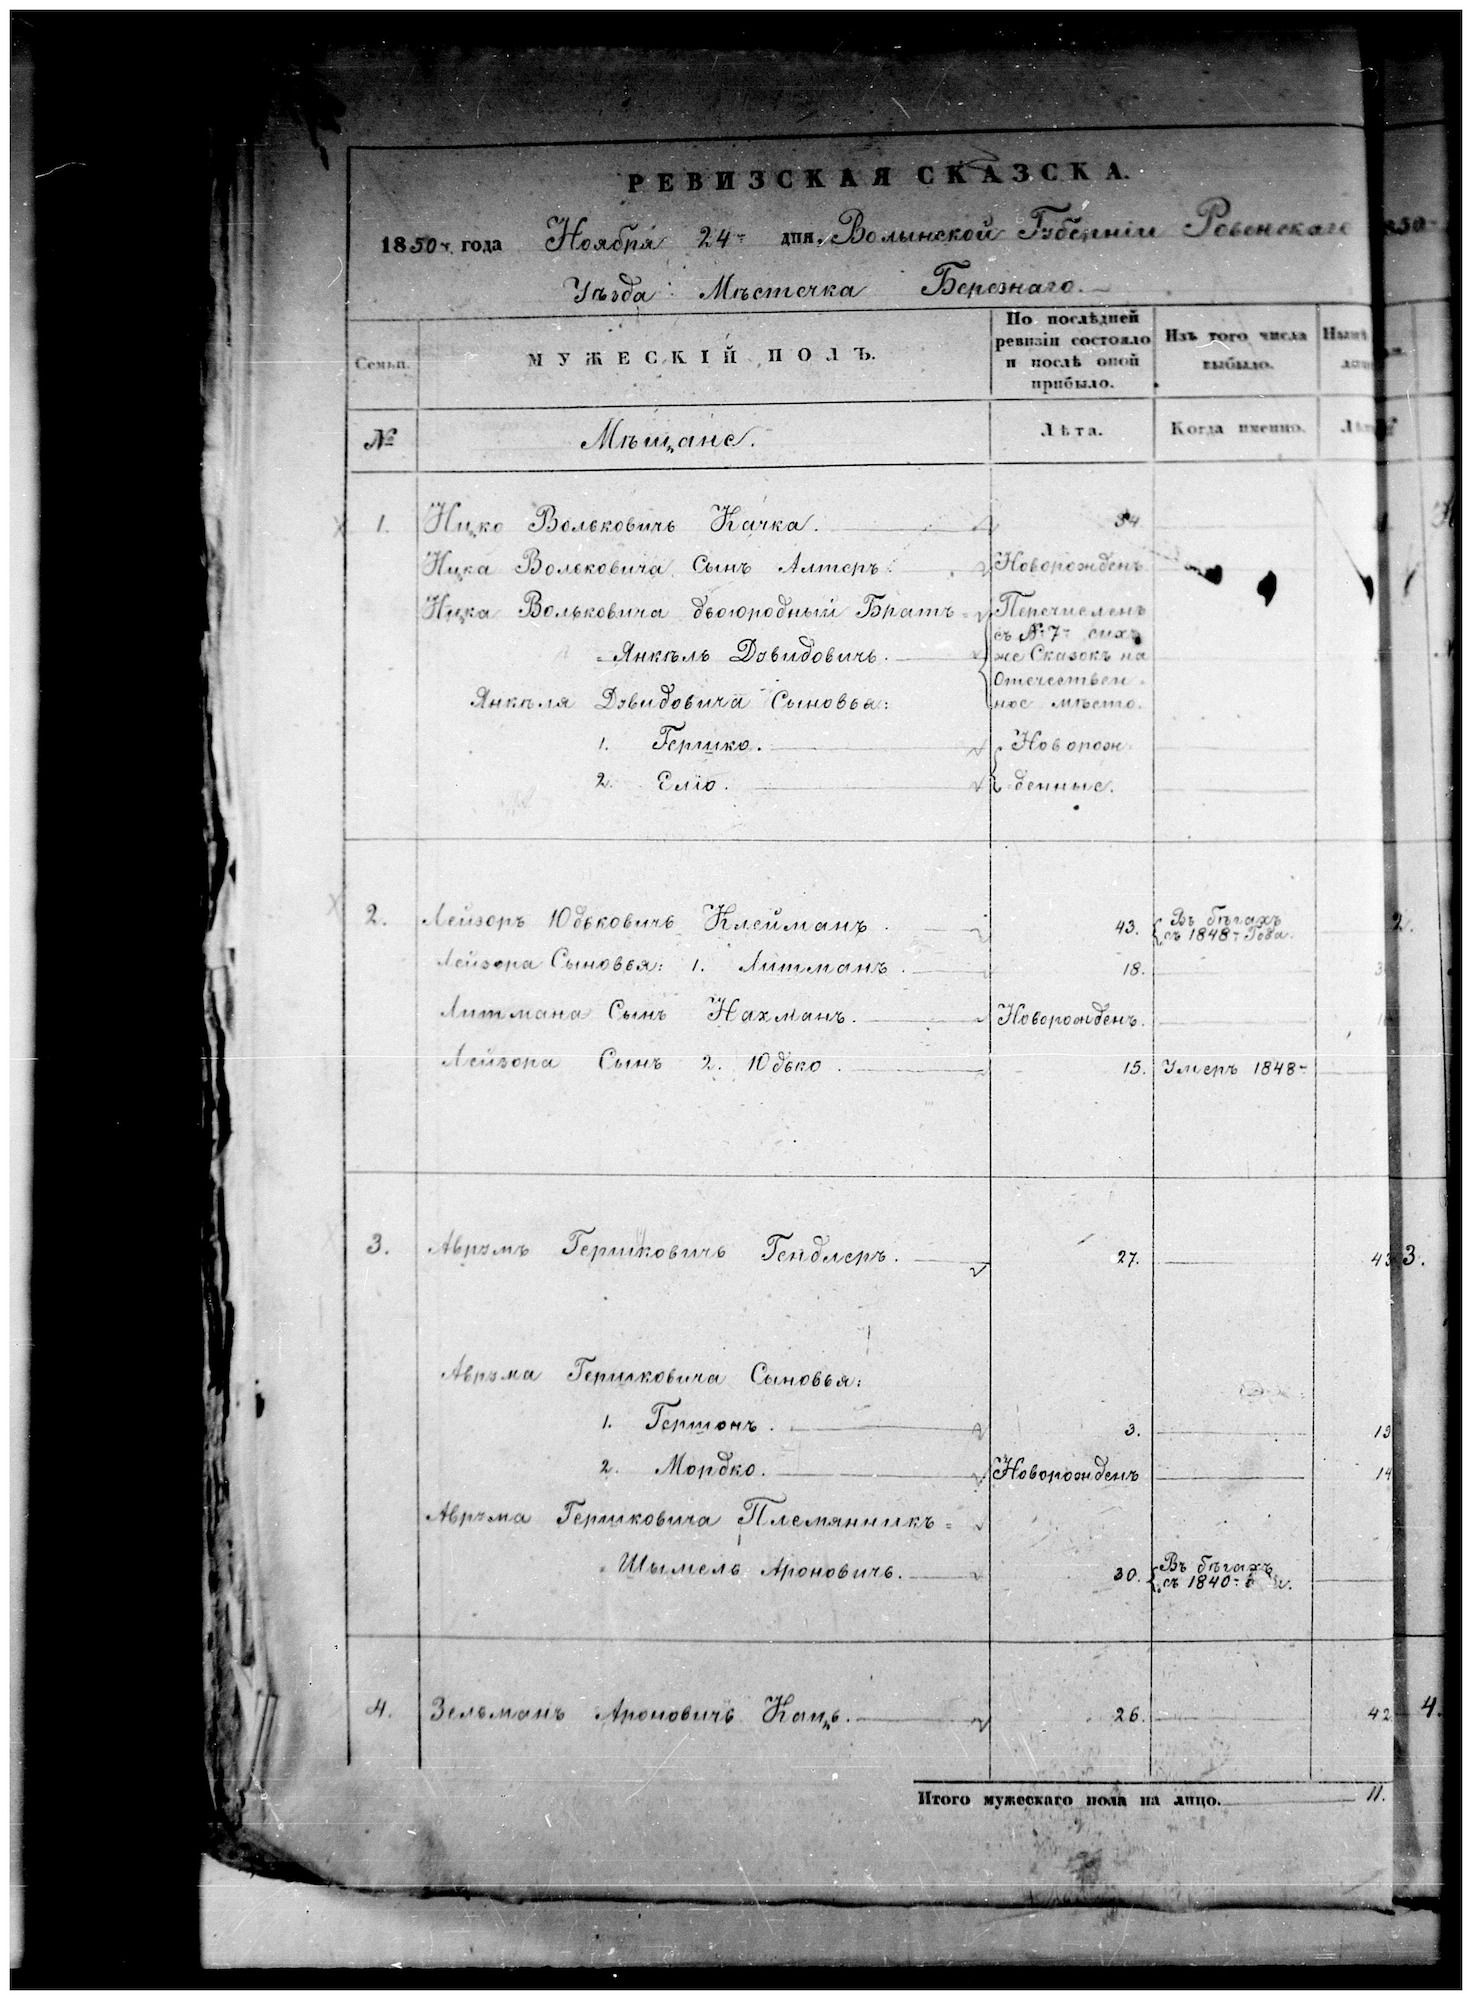 РЕВИЗСКАЯ СКАЗСКА.
1850 го года Ноября 24 дня, Волынской Губерніи Ровенскаго
Уѣзда Мѣстечка Березнаго.
Семьи.
МУЖЕСКІЙ ПОЛЪ.
По послѣдней ревизіи состояло и послѣ оной прибыло.
Изъ того числа выбыло.
Нынѣ
№
Мѣщане.
Лѣта.
Когда именно.
1. Ицко Вольковичъ Качка. 34
Ицка Вольковича Сынъ Алтеръ. Новорожденъ
Ицка Вольковича двоюродный Братъ = Перечисленъ
съ № 7 сихъ
= Янкель Дэвидовичъ. же Сказокъ на
Отечествен-
Янкеля Дэвидовича Сыновья: ное мѣсто.
1. Гершко. Новорож-
2. Еліо. денные.
2. Лейзоръ Юдьковичъ Клейманъ. 43. Въ бѣгахъ 2.
съ 1848 Года.
Лейзора Сыновья: 1. Литманъ. 18.
Литмана Сынъ Нахманъ. Новорожденъ.
Лейзора Сынъ 2. Юдько. 15. Умеръ 1848
3. Аврумъ Гершковичъ Гендлеръ. 27. 43 3.
Аврума Гершковича Сыновья:
1. Гершонъ. 3. 13
2. Мордко. Новорожденъ 14
Аврума Гершковича Племянникъ =
= Шымель Ароновичъ. 30. Въ бѣгахъ
съ 1840
4. Зельманъ Ароновичъ Кацъ. 26. 42 4.
Итого мужескаго пола на лицо. 11.